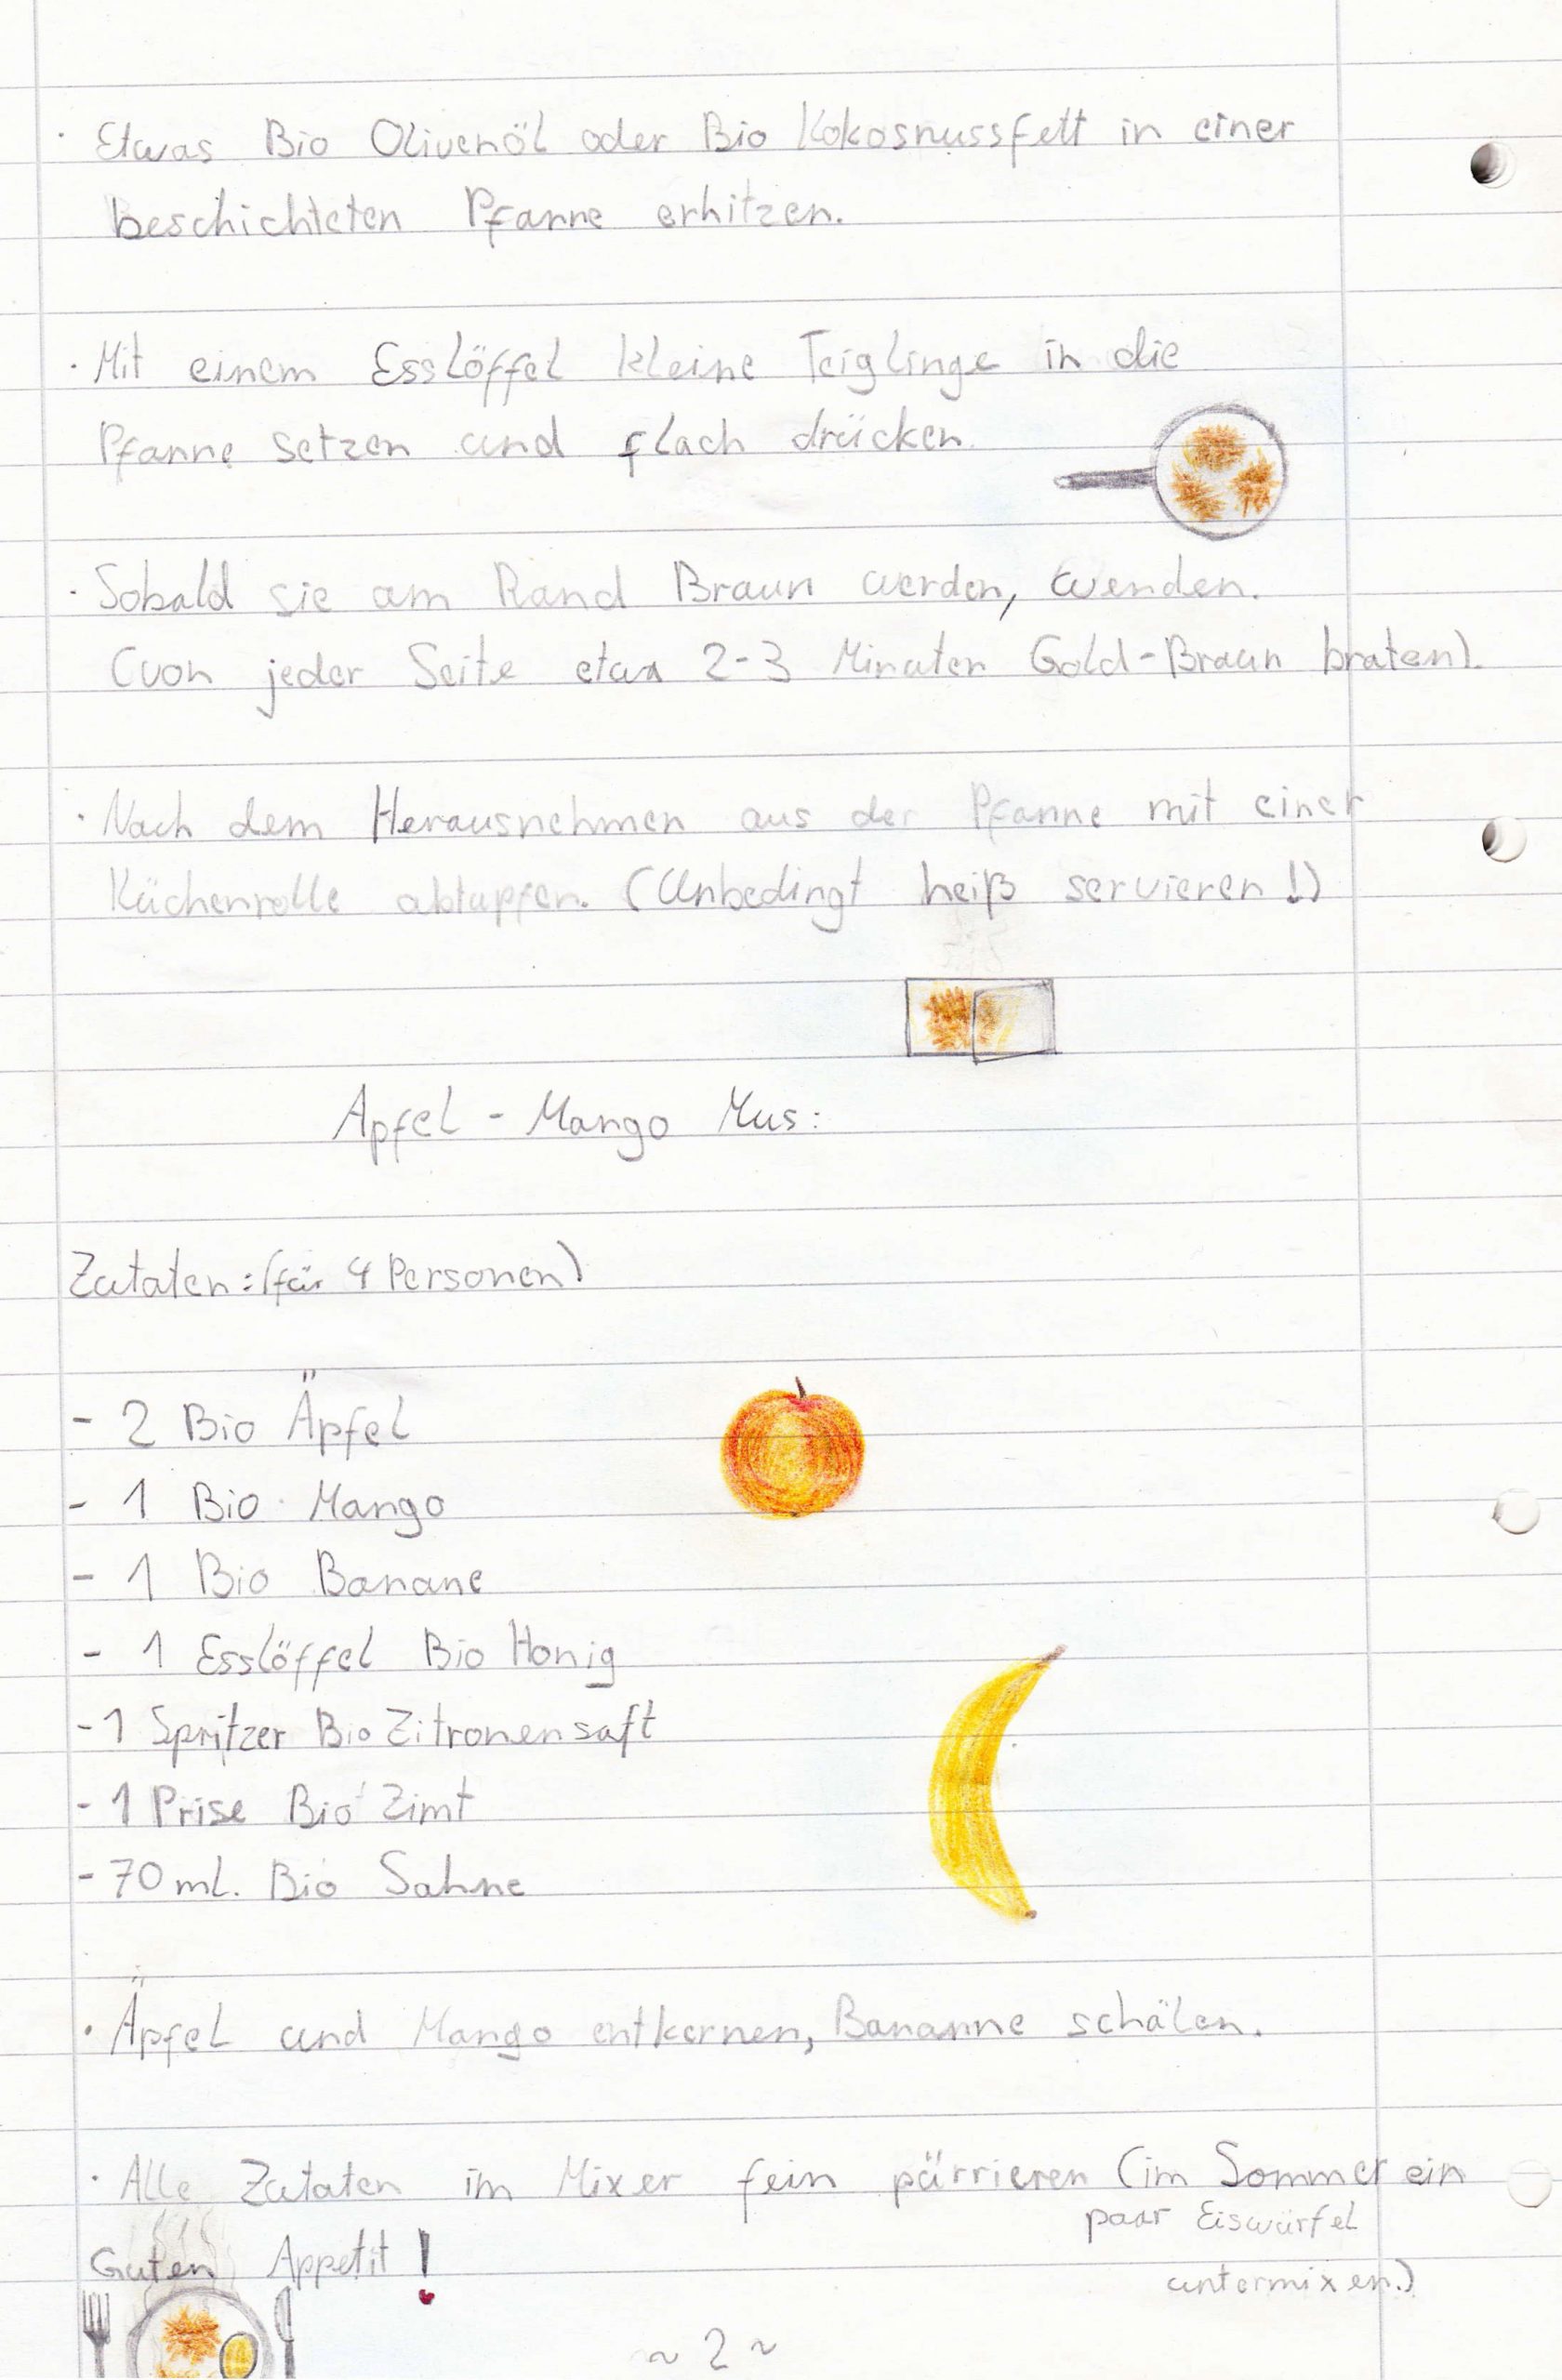 · Etwas Bio Olivenöl oder Bio Kokosnussfett in einer
beschichteten Pfanne erhitzen.
· Mit einem Esslöffel kleine Teiglinge in die
Pfanne setzen und flach drücken.
· Sobald sie am Rand Braun werden, wenden.
(von jeder Seite etwa 2-3 Minuten Gold-Braun braten).
· Nach dem Herausnehmen aus der Pfanne mit einer
Küchenrolle abtupfen. (Unbedingt heiß servieren!)
Apfel - Mango Mus:
Zutaten: (für 4 Personen)
- 2 Bio Äpfel
- 1 Bio Mango
- 1 Bio Banane
- 1 Esslöffel Bio Honig
- 1 Spritzer Bio Zitronensaft
- 1 Prise Bio Zimt
- 70 ml. Bio Sahne
· Äpfel und Mango entkernen, Bananne schälen.
· Alle Zutaten im Mixer fein pürrieren (im Sommer ein
paar Eiswürfel
untermixen.)
Guten Appetit!
~ 2 ~